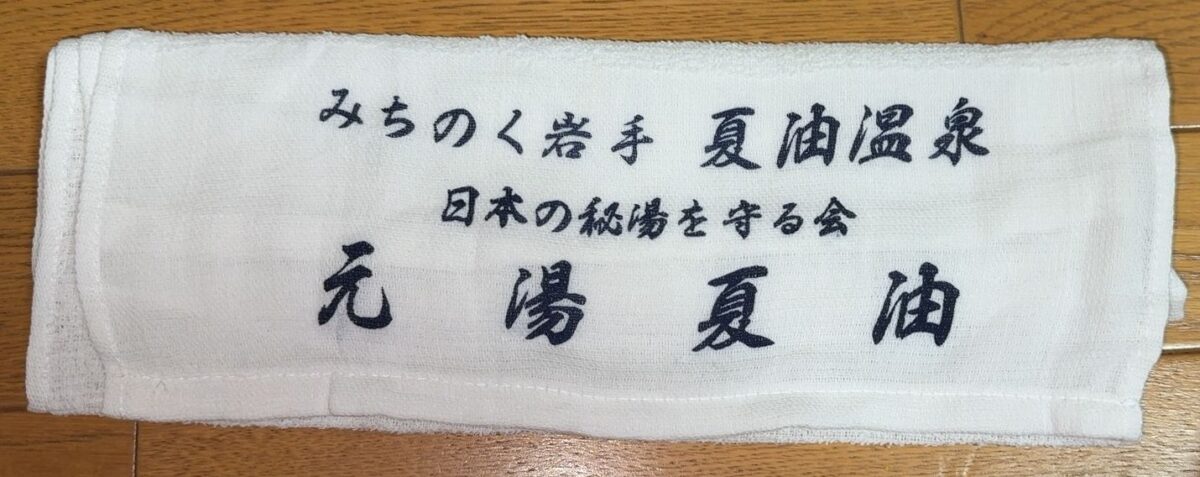 みちのく岩手 夏油温泉
日本の秘湯を守る会
元湯夏油